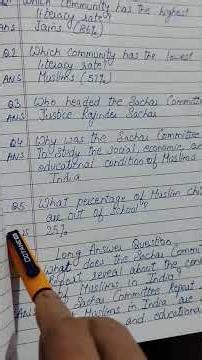 Which community has the highest
literacy rate?
ANS Jains (86%)
Q.2 Which community has the lowest
literacy rate?
ANS Muslims (57%)
Q3 Who headed the Sachar Committ
ANS Justice Rajinder Sachar
Q4 Why was the Sachar Committee
ANS To study the social, economic a
educational condition of Muslims
India
Q5 What percentage of Muslim chi
are out of school?
25%
Long Answer Question
What does the Sachar Commi
Report reveal about the con
of Muslims in India?
Sachar Committee Report
Muslims in India are
and educationa